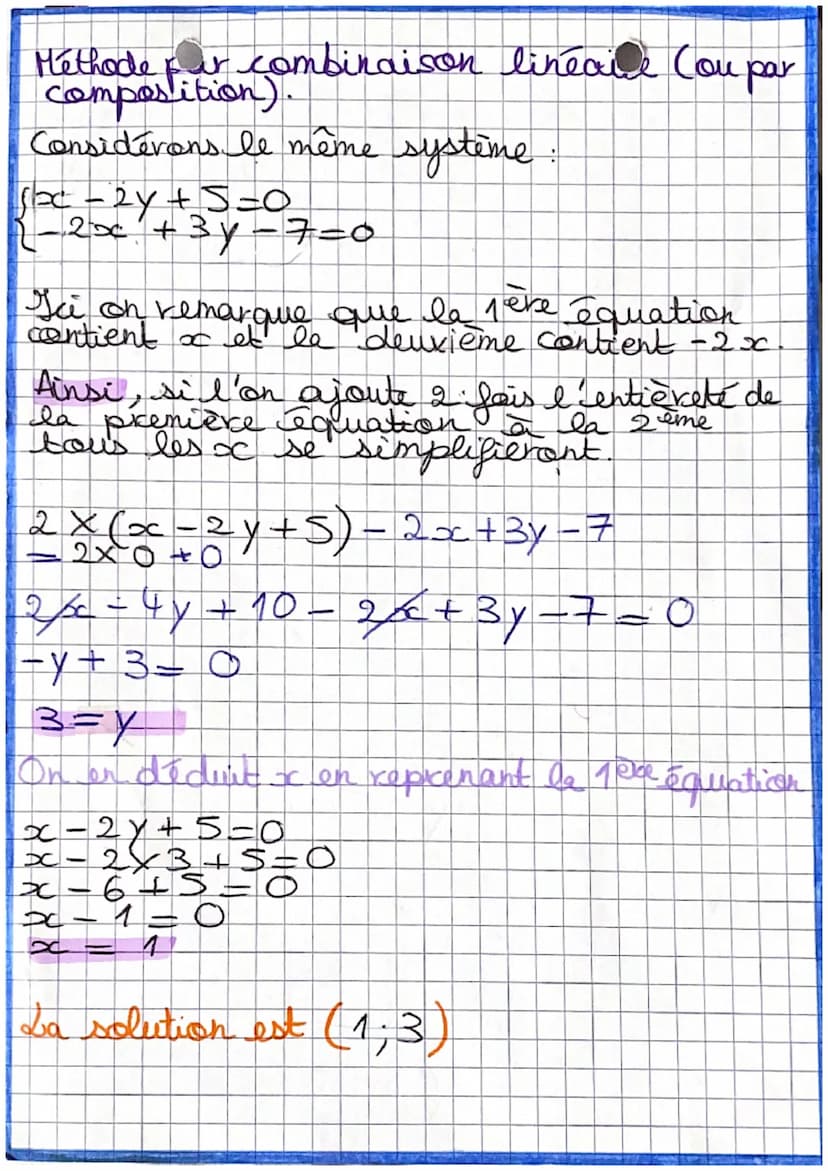 Méthode par combinaison linéaire (ou par
composition).
Considérons le même système :
{x - 2y + 5 = 0
{-2x + 3y - 7 = 0
Ici on remarque que la 1ère équation
contient x et la deuxième contient -2x.
Ainsi, si l'on ajoute 2 fois l'entièreté de
la première équation à la 2ème
tous les x se simplifieront.
2 × (x - 2y + 5) - 2x + 3y - 7
= 2 × 0 + 0
2x - 4y + 10 - 2x + 3y - 7 = 0
-y + 3 = 0
3 = y
On en déduit x en reprenant la 1ère équation
x - 2y + 5 = 0
x - 2 × 3 + 5 = 0
x - 6 + 5 = 0
x - 1 = 0
x = 1
La solution est (1 ; 3)